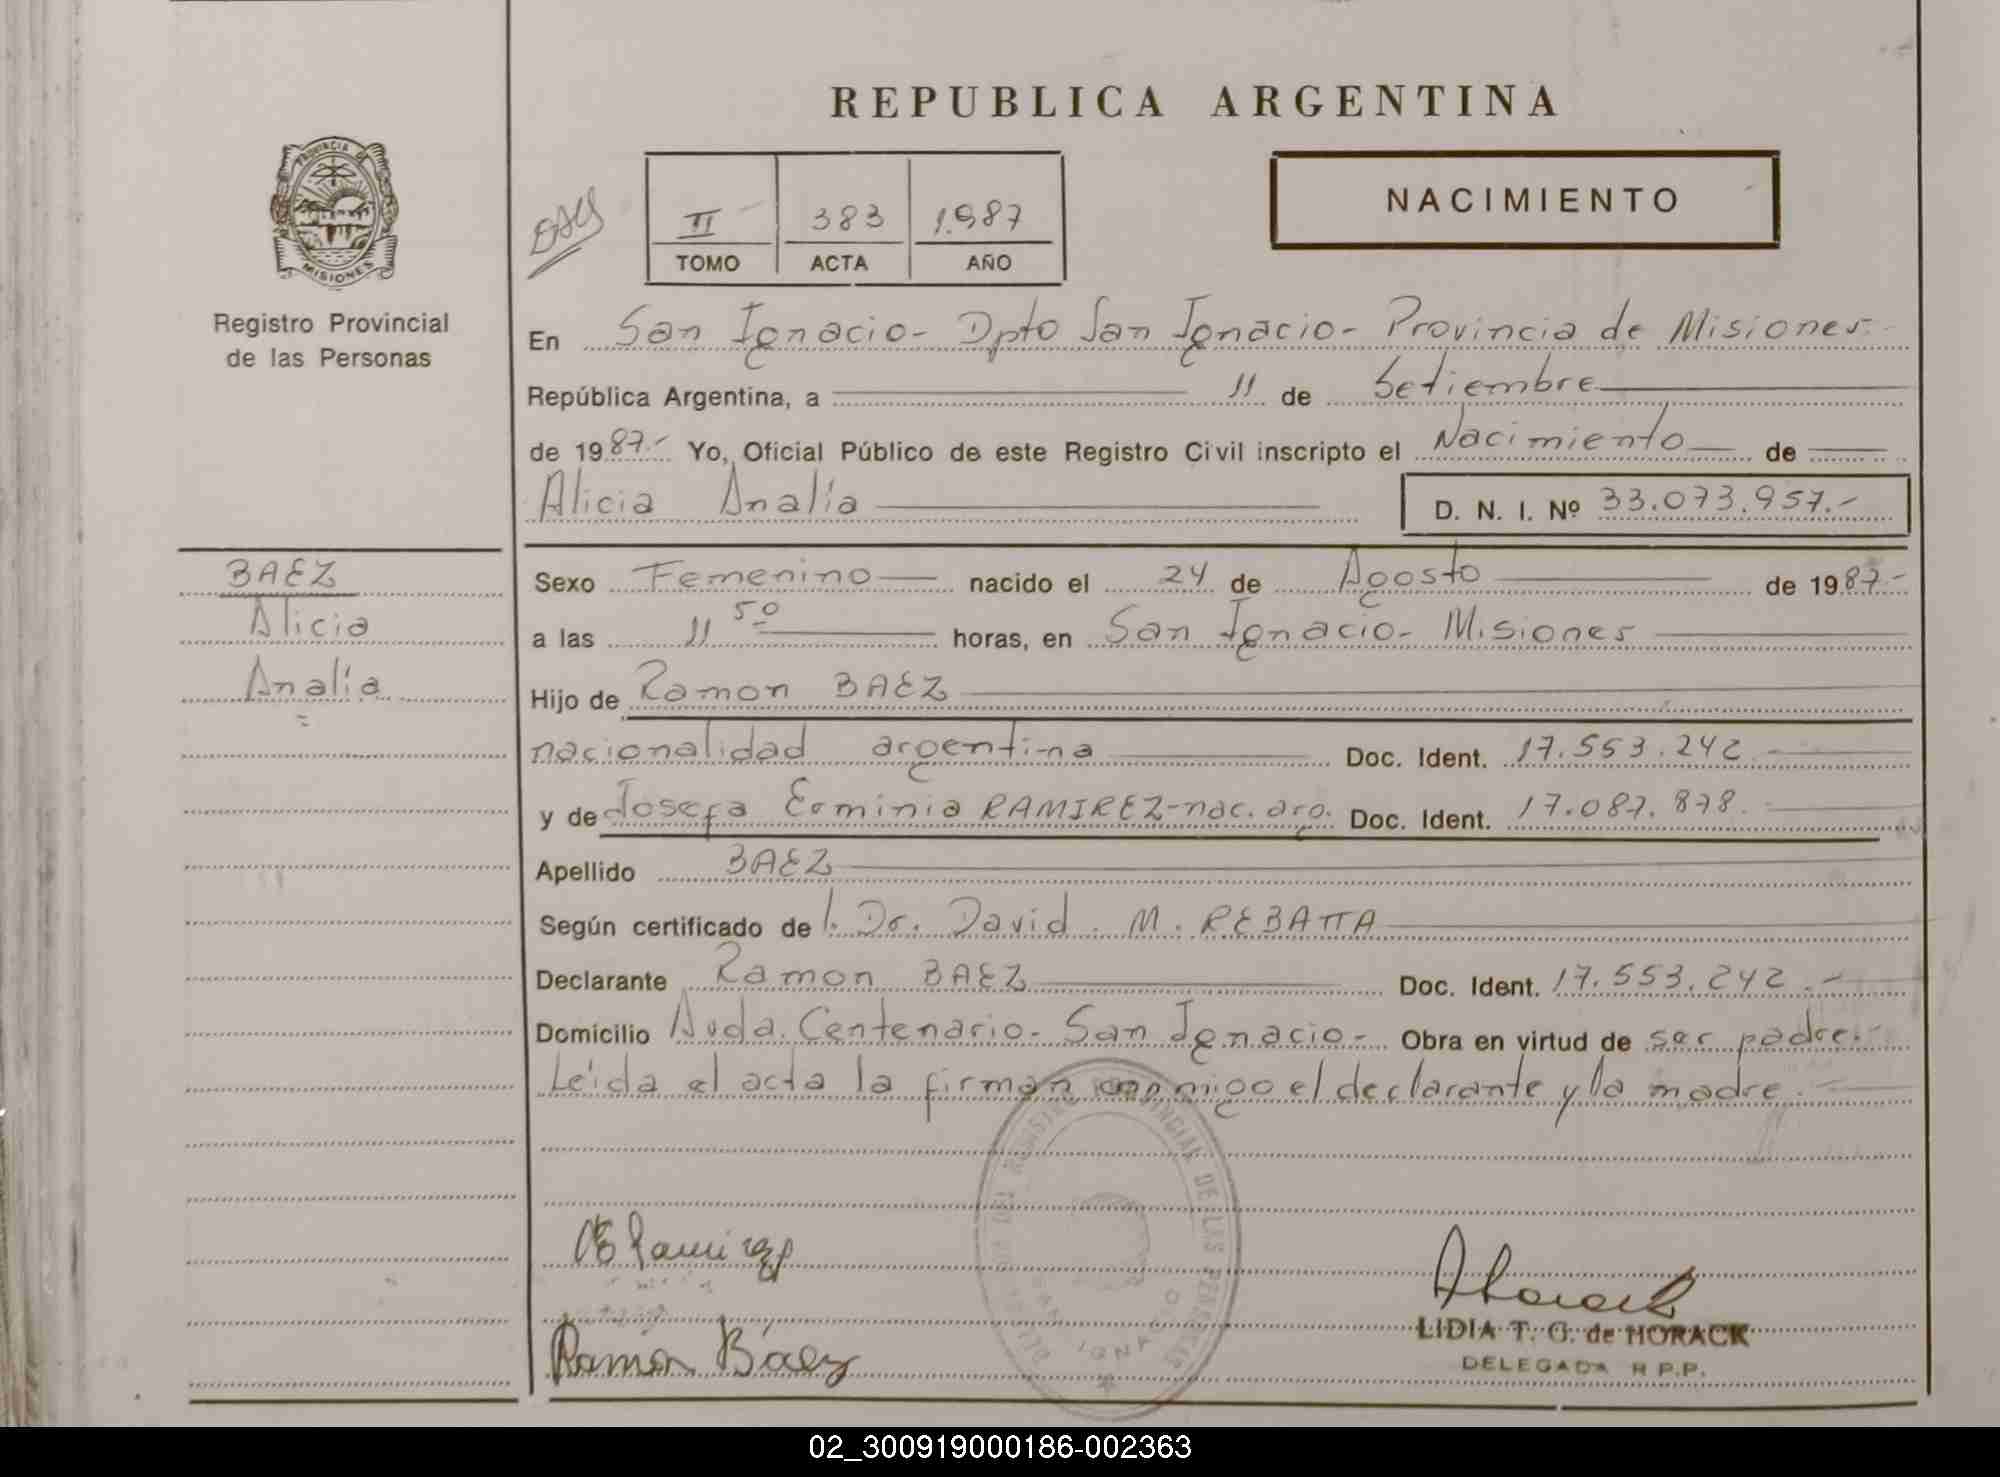 REPUBLICA ARGENTINA
PROVINCIA DE
MISIONES
Registro Provincial
de las Personas
II 383 1.987
TOMO ACTA AÑO
NACIMIENTO
En San Ignacio- Dpto San Ignacio- Provincia de Misiones.-
República Argentina, a 11 de Setiembre
de 1987.- Yo, Oficial Público de este Registro Civil inscripto el Nacimiento de
Alicia Analía D. N. I. Nº 33.073.957.-
BAEZ
Alicia
Analía
Sexo Femenino nacido el 24 de Agosto de 1987.-
a las 11 50 horas, en San Ignacio- Misiones
Hijo de Ramon BAEZ
nacionalidad argentina Doc. Ident. 17.553.242
y de Josefa Erminia RAMIREZ-nac. arg. Doc. Ident. 17.087.878.
Apellido BAEZ
Según certificado de l. Dr. David. M. REBATTA
Declarante Ramon BAEZ Doc. Ident. 17.553.242.-
Domicilio Avda. Centenario- San Ignacio- Obra en virtud de ser padre.-
Leída el acta la firman conmigo el declarante y la madre.
REGISTRO PROVINCIAL DE LAS PERSONAS
SAN IGNACIO
Ramirez
Ramón Báez
LIDIA T. G. de HORACK
DELEGADA R P.P.
02_300919000186-002363